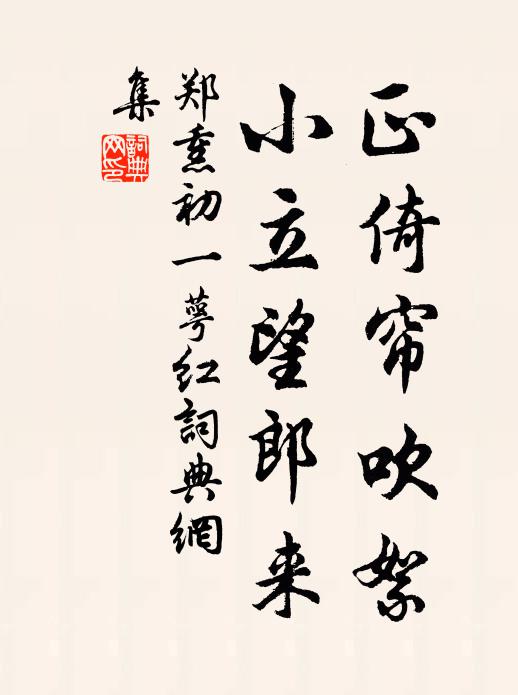 正倚帘吹絮
小立望郎来
郑熏初一萼红詞典網
集
詞典
网印